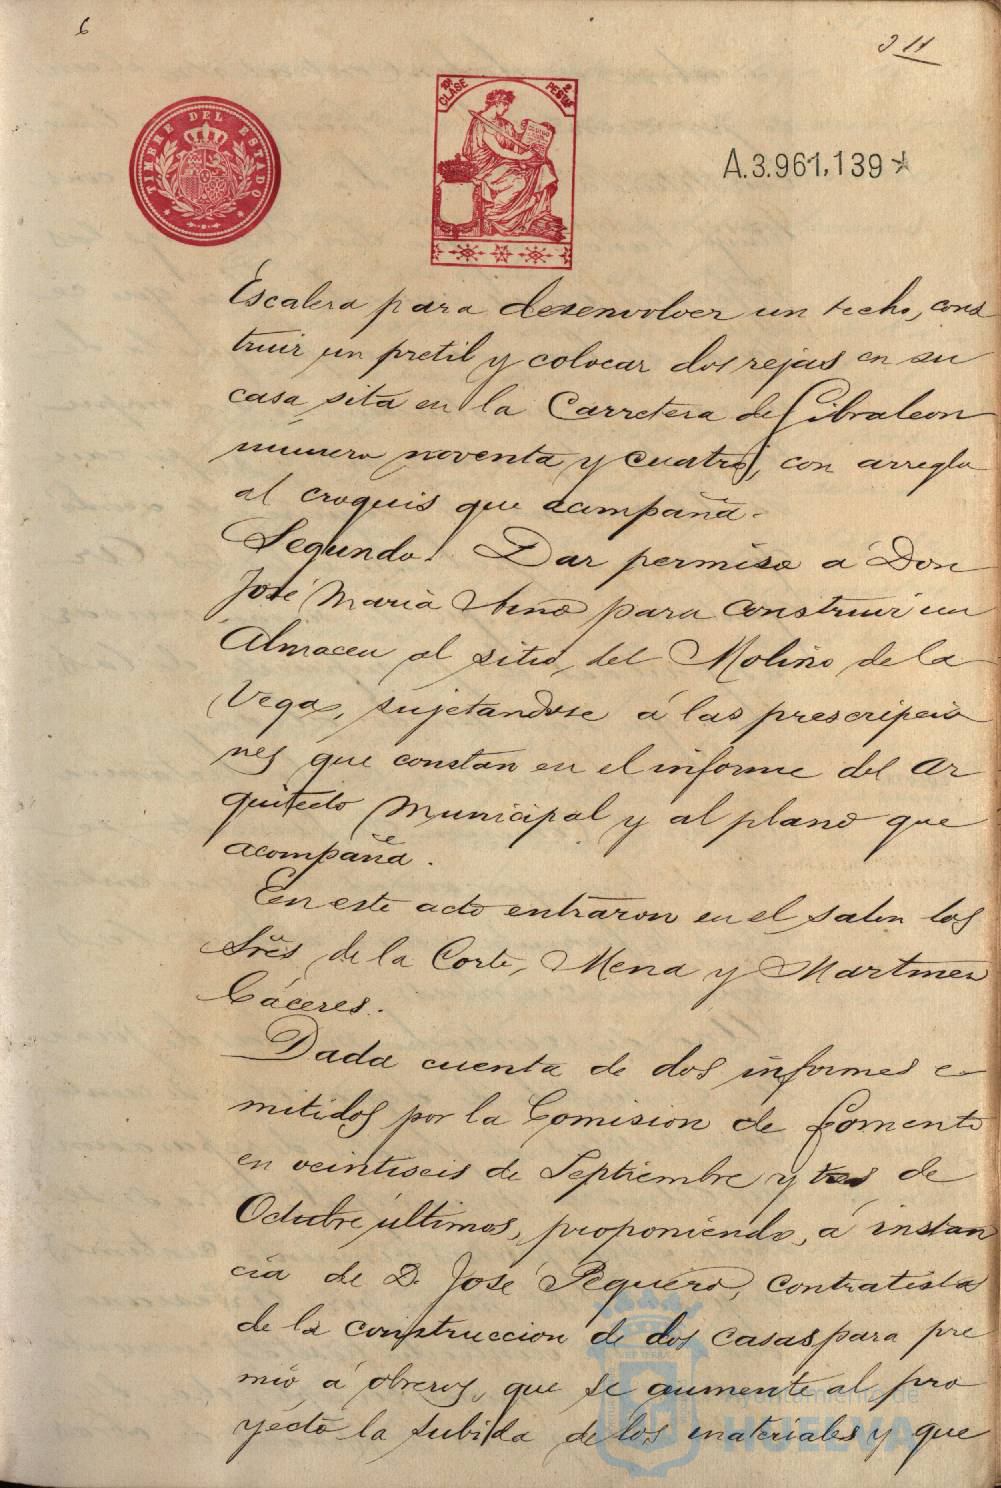 6
311
TIMBRE DEL ESTADO
10ª CLASE
2 PESETAS
A.3.961,139
Escalera para desenvolver un techo, cons
truir un pretil y colocar dos rejas en su
casa sita en la Carretera de Gibraleon
número noventa y cuatro, con arreglo
al croquis que acompaña.
Segundo. Dar permiso á Don
José Maria para construir un
Almacen al sitio del Molino de la
Vega, sujetandose á las prescripcio
nes que constan en el informe del ar
quitecto Municipal y al plano que
acompaña.
En este acto entraron en el salon los
Sres de la Corte, Mena y Martinez
Cáceres.
Dada cuenta de dos informes e
mitidos por la Comision de Fomento
en veintiseis de Septiembre y tres de
Octubre últimos, proponiendo, á instan
cia de D. José Peguero, contratista
de la construccion de dos casas para pre
mio á obreros, que se aumente al pro
yecto la subida de los materiales y que
Ayuntamiento de
HUELVA